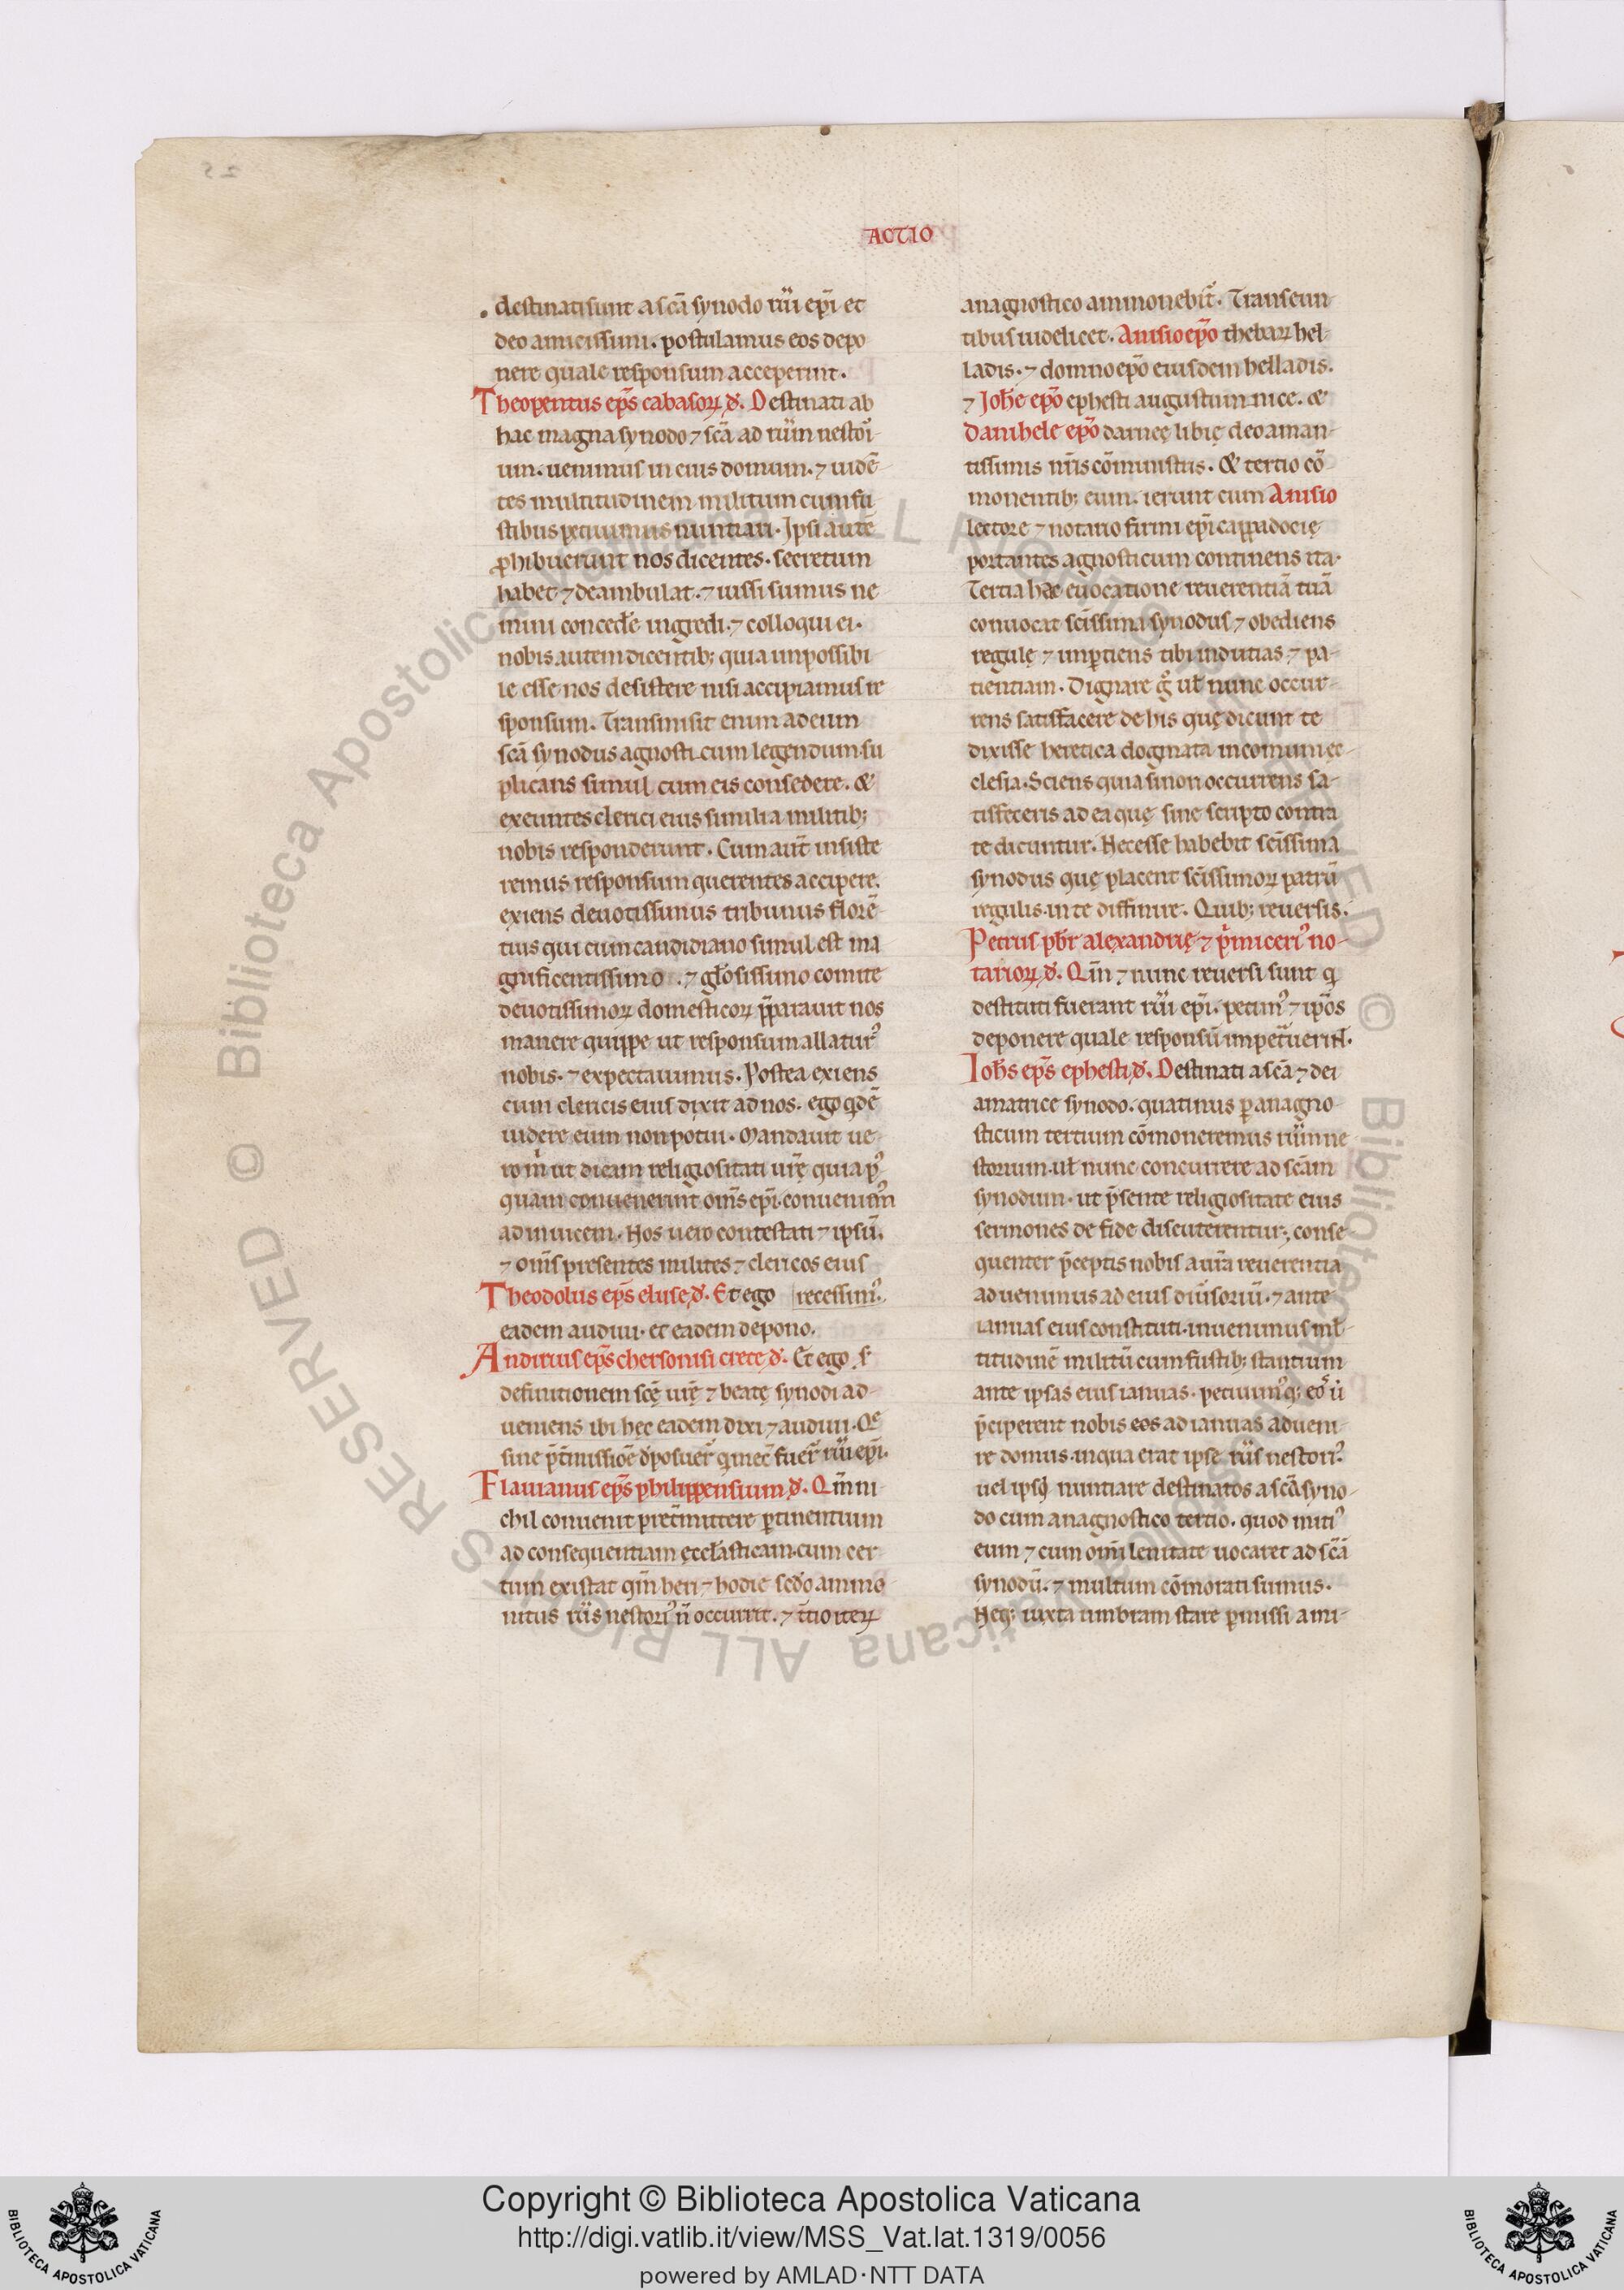 ACTIO
destinati sunt a scā synodo rūi ep̄i et
deo amicissimi. postulamus eos depo
nere quale responsum acceperint.
Theopentus ep̄s cabasoꝝ d̄. Destinati ab
hac magna synodo ⁊ scā ad rūm nestoꝛi
um. uenimus in eius domum. ⁊ uidē
tes multitudinem militum cum fu
stibus petiuimus nuntiari. Ipsi autē
ꝓhibuerunt nos dicentes. secretum
habet ⁊ deambulat. ⁊ iussi sumus ne
mini concedēe ingredi. ⁊ colloqui ei.
nobis autem dicentib; quia inpossibi
le esse nos desistere nisi accipiamus re
sponsum. Transmisit enim ad eum
scā synodus agnosticum legendum su
plicans simul cum eis consedere. &
exeuntes clerici eius similia militib;
nobis responderunt. Cum aut̄ insiste
remus responsum querentes accipere.
exiens deuotissimus tribunus florē
tius qui cum candidiano simul est ma
gnificentissimo . ⁊ gl̄osissimo comite
deuotissimoꝝ domesticoꝝ p̄parauit nos
manere quippe ut responsum allaturꝰ
nobis. ⁊ expectauimus. Postea exiens
cum clericis eius dixit ad nos. ego qdē
uidere eum non potui. Mandauit ue
ro m̄ ut dicam religiositati ur̄ę quia pꝰ
quam conuenerint om̄s ep̄i. conueniemꝰ
ad inuicem. Nos uero contestati ⁊ ipsū.
⁊ om̄s presentes milites ⁊ clericos eius
Theodolus ep̄s eluse d̄. Et ego recessimꝰ.
eadem audiui. et eadem depono.
Andirius ep̄s chersonisi crete d̄. Et ego s̄
definitionem scę̄ ur̄ę ⁊ beatę synodi ad
ueniens ibi hęc eadem dixi ⁊ audiui. Qe
sine p̄t̄missiōe d̄posuer̄ q inec̄ fuer̄ rūi ep̄i.
Flauianus ep̄s philippensium d̄. Qm̄ ni
chil conuenit pret̄mittere ꝑtinentium
ad consequentiam ęccl̄asticam. cum cer
tum existat qm̄ heri ⁊ hodie sed̄o ammo
nitus rūs nestoriꝰ n̄ occurrit. ⁊ t̄tio iteꝝ
anagnostico ammonebit̄. Transeun
tibus uidelicet. Anisio ep̄o thebaꝝ hel
ladis. ⁊ domno ep̄o eiusdem helladis.
⁊ Ioh̄e ep̄o ephesti augustum nice. &
Danihele ep̄o darneę libię deo aman
tissimis nr̄is cōministris. & tertio cō
monentib; eum. ierunt cum Anisio
lectore ⁊ notario firmi ep̄i cappadocię
portantes agnosticum continens ita.
Tertia hac euocatione reuerentiā tuā
conuocat scīssima synodus ⁊ obediens
regulę ⁊ inꝑtiens tibi indutias ⁊ pa
tientiam. Dignare g̊ ul̄ nunc occur
rens satisfacere de his quę dicunt te
dixisse heretica dogmata in comuni ęc
clesia. Sciens quia si non occurrens sa
tisfeceris ad ea quę sine scripto contra
te dicuntur. Necesse habebit scīssima
synodus quę placent scīssimoꝝ patrū
regulis in te diffinire. Quib; reuersis.
Petrus pb̄r alexandrię ⁊ p̄miceriꝰ no
tarioꝝ d̄. Qm̄ ⁊ nunc reuersi sunt q
destituti fuerant rūi ep̄i. petimꝰ ⁊ ipōs
deponere quale responsū impet̄uerint̄.
Ioh̄s ep̄s ephesti d̄. Destinati a scā ⁊ dei
amatrice synodo. quatinus ꝑ anagno
sticum tertium cōmoneremus rūm ne
storium. ul̄ nunc concurrere ad scām
synodum. ut p̄sente religiositate eius
sermones de fide discuterentur; conse
quenter p̄ceptis nobis a ur̄a reuerentia
aduenimus ad eius diuisoriū. ⁊ ante
ianuas eius constituti. inuenimus ml̄
titudinē militū cum fustib; stantium
ante ipsas eius ianuas. petiuimꝰq; eoꝰ ù
p̄ciperent nobis eos ad ianuas adueni
re domus. in qua erat ipse rūs nestoriꝰ
uel ipsi nuntiare destinatos a scā syno
do cum anagnostico tertio. quod mitiꝰ
eum ⁊ cum om̄i lenitate uocaret ad scā
synodū. ⁊ multum cōmorati sumus.
Neq; iuxta umbram stare ꝑmissi a mi
Copyright © Biblioteca Apostolica Vaticana
http://digi.vatlib.it/view/MSS_Vat.lat.1319/0056
powered by AMLAD·NTT DATA
BIBLIOTECA APOSTOLICA VATICANA
BIBLIOTECA APOSTOLICA VATICANA
© Biblioteca Apostolica Vaticana ALL RIGHTS RESERVED © Biblioteca Apostolica Vaticana ALL RIGHTS RESERVED